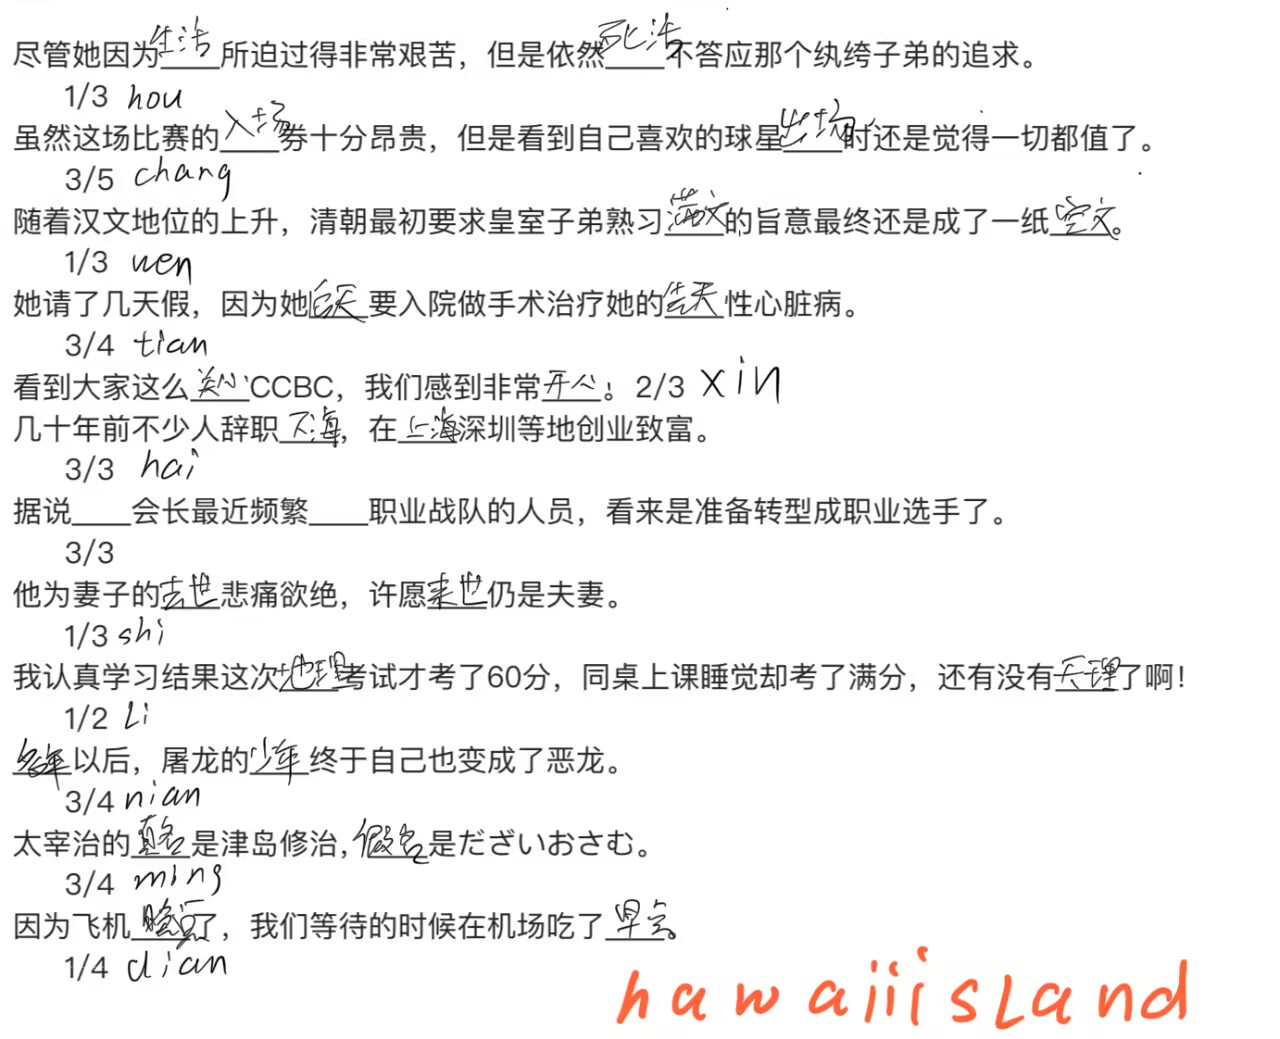 尽管她因为生活所迫过得非常艰苦，但是依然死活不答应那个纨绔子弟的追求。
1/3 hou
虽然这场比赛的入场券十分昂贵，但是看到自己喜欢的球星出场时还是觉得一切都值了。
3/5 chang
随着汉文地位的上升，清朝最初要求皇室子弟熟习满文的旨意最终还是成了一纸空文。
1/3 wen
她请了几天假，因为她后天要入院做手术治疗她的先天性心脏病。
3/4 tian
看到大家这么关心CCBC，我们感到非常开心！2/3 xin
几十年前不少人辞职下海，在上海深圳等地创业致富。
3/3 hai
据说____会长最近频繁____职业战队的人员，看来是准备转型成职业选手了。
3/3
他为妻子的去世悲痛欲绝，许愿来世仍是夫妻。
1/3 shi
我认真学习结果这次地理考试才考了60分，同桌上课睡觉却考了满分，还有没有天理了啊！
1/2 Li
多年以后，屠龙的少年终于自己也变成了恶龙。
3/4 nian
太宰治的真名是津岛修治，假名是だざいおさむ。
3/4 ming
因为飞机晚点了，我们等待的时候在机场吃了早点。
1/4 dian
hawaiiisLand